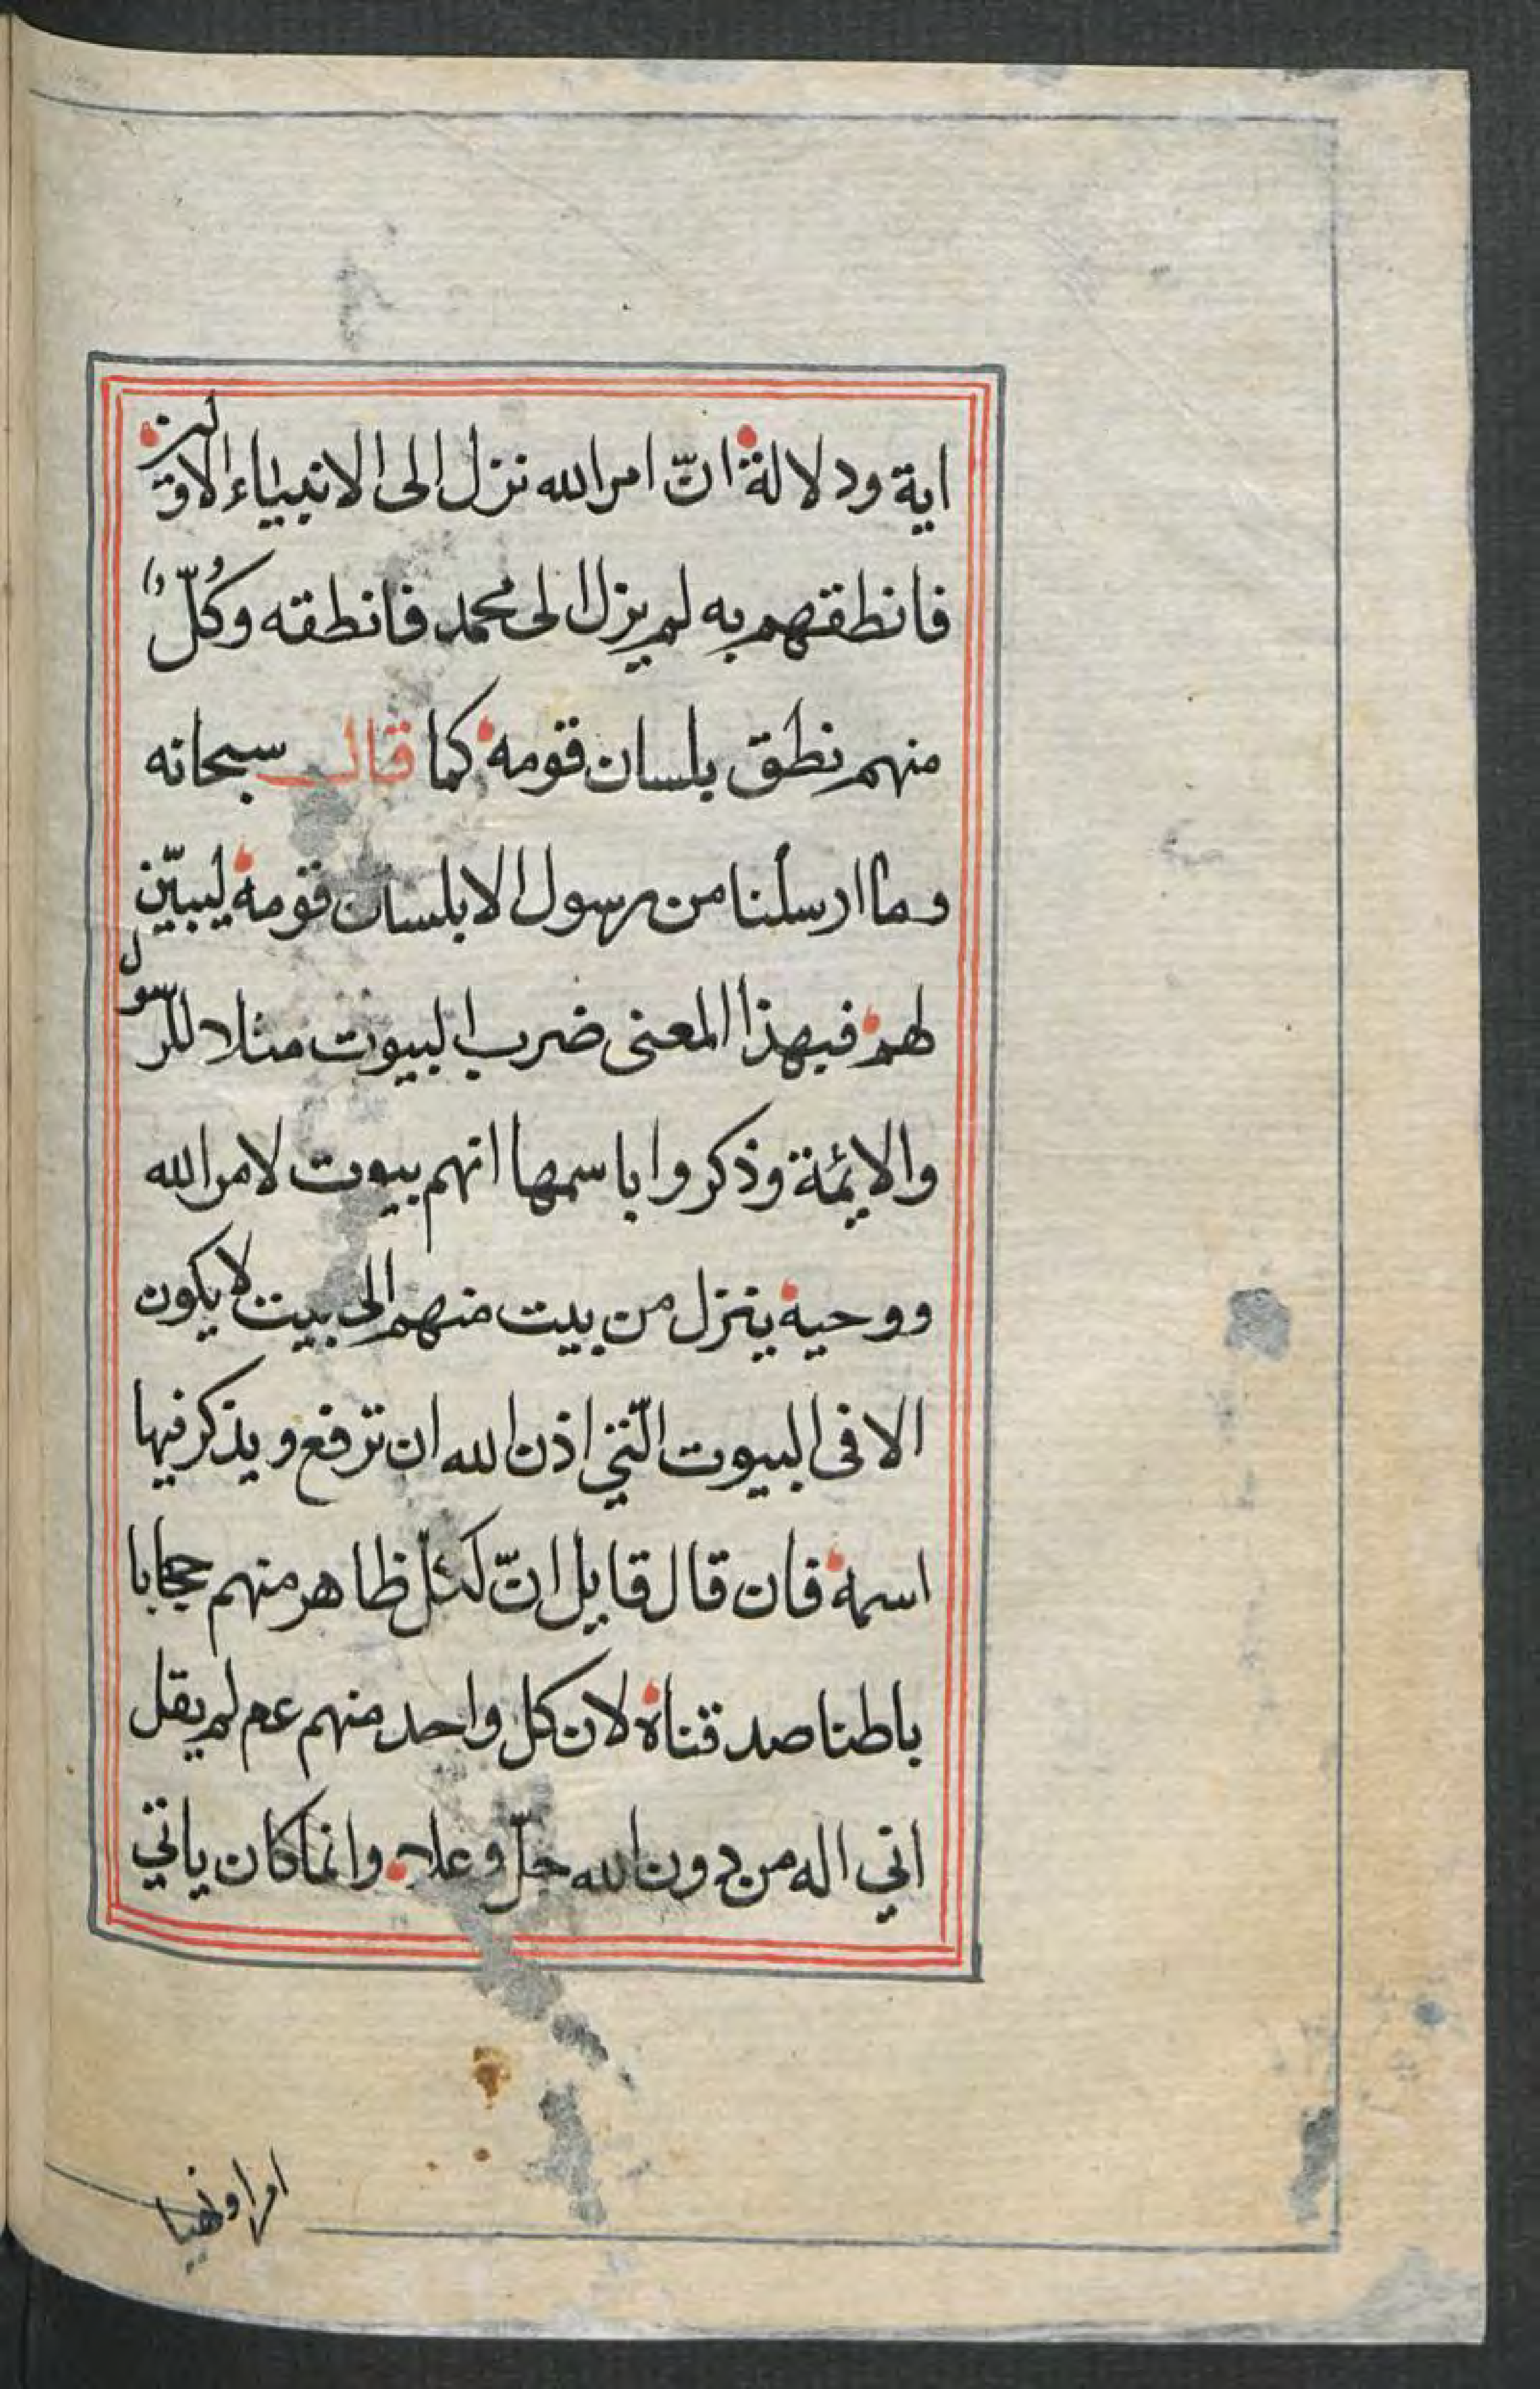 اية ودلالة انّ امر الله نزل الى الانبياء الاوّلين
فانطقهم به لم يزل الى محمد فانطقه وكُلٌّ
منهم نطق بلسان قومه كما قال سبحانه
وما ارسلنا من رسول الا بلسان قومه ليبيّن
لهم فبهذا المعنى ضرب البيوت مثلا للرسول
والايئمة وذكروا باسمها انهم بيوت لامر الله
ووحيه ينزل من بيت منهم الى بيت لا يكون
الا فى البيوت الّتي اذن الله ان ترفع ويذكر فيها
اسمه فان قال قايل انّ لكل ظاهر منهم حجابا
باطنا صدقناه لان كل واحد منهم عم لم يقل
اني اله من دون الله جلّ وعلا وانما كان ياتي
امرا ونهيا